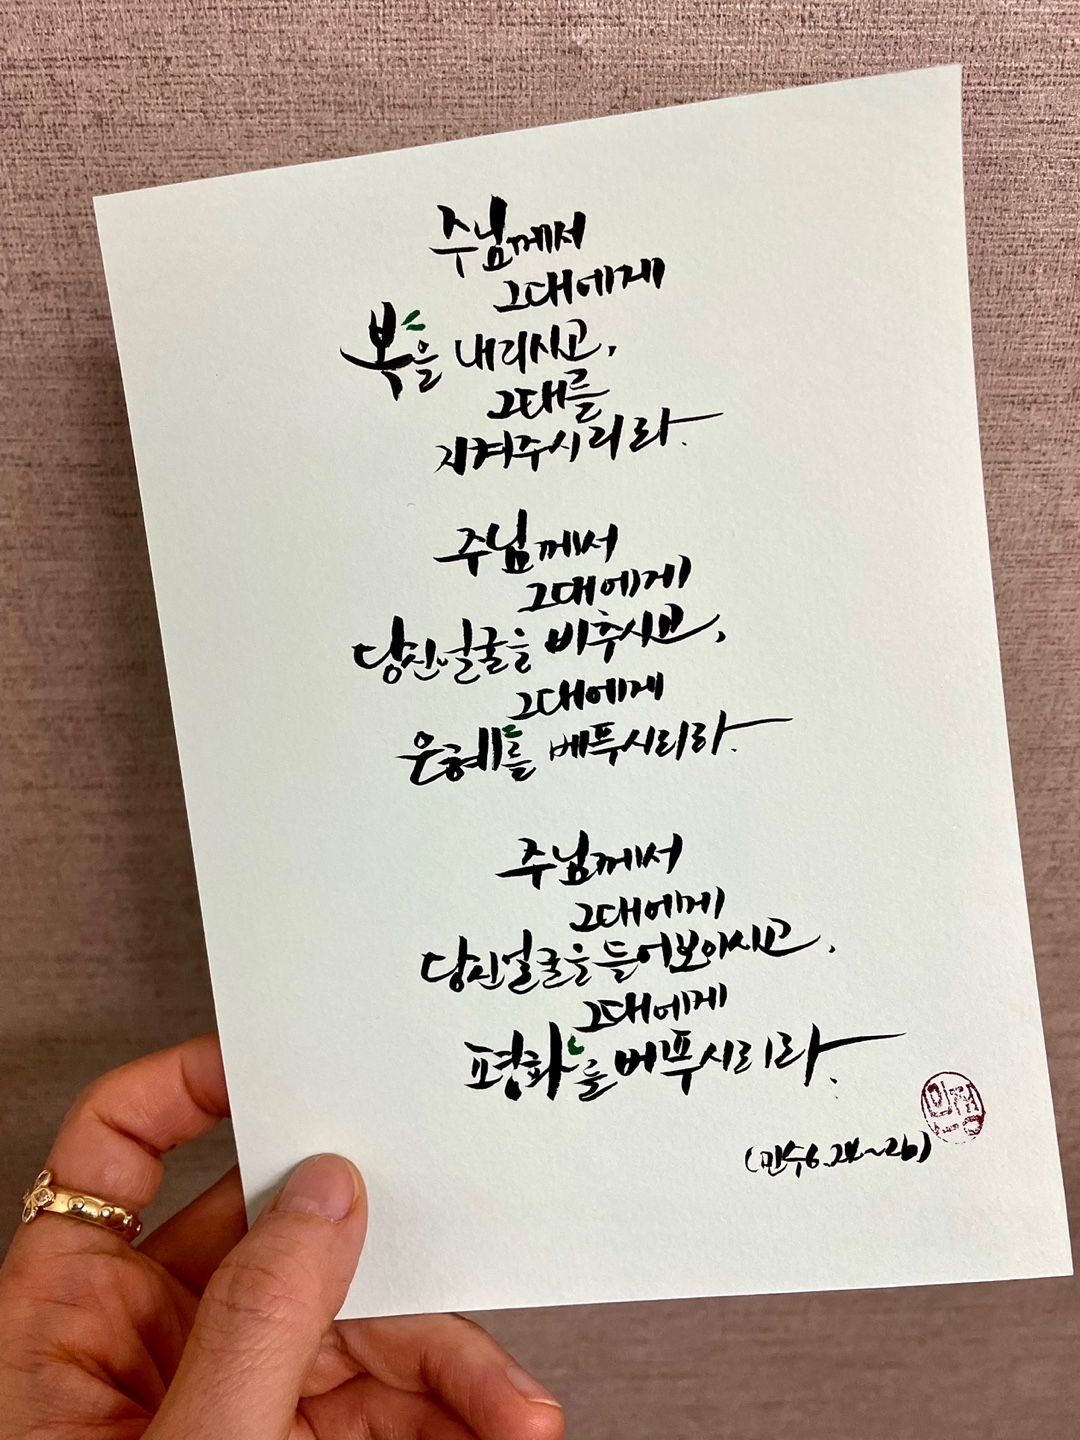 주님께서
그대에게
복을 내리시고,
그대를
지켜주시리라.
주님께서
그대에게
당신 얼굴을 비추시고,
그대에게
은혜를 베푸시리라.
주님께서
그대에게
당신 얼굴을 들어보이시고,
그대에게
평화를 베푸시리라.
(민수 6. 24~26)